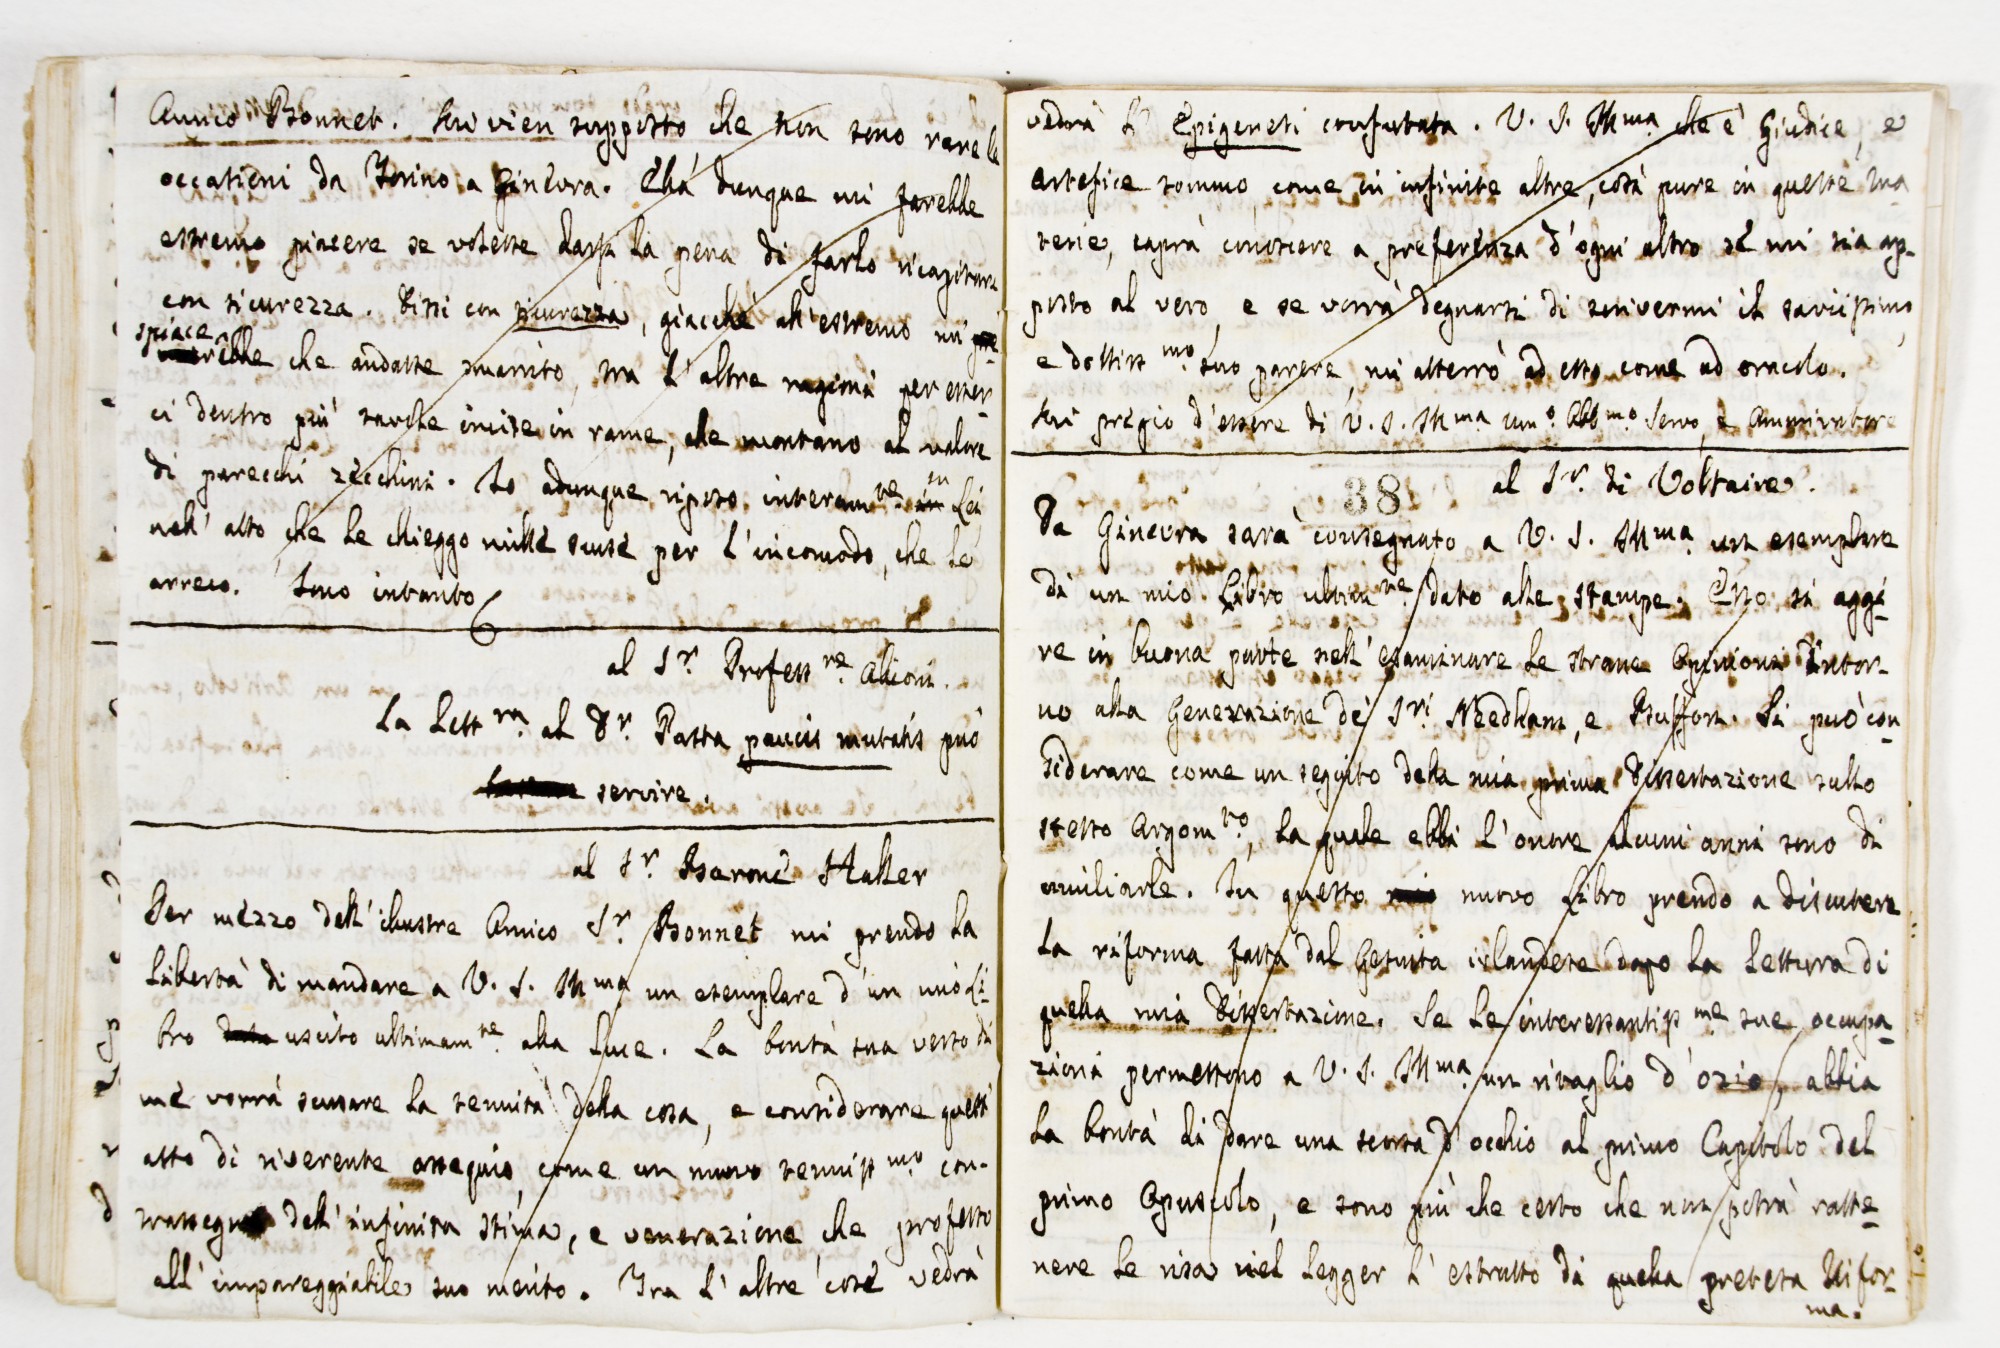 Amico Bonnet. Mi vien supposto che non sono rare le
occasioni da Torino a Ginevra. Ella dunque mi farebbe
estremo piacere se volesse darsi la pena di farlo ricapitare
con sicurezza. Dissi con sicurezza, giacchè all'estremo mi
spiace
rebbe che andasse smarrito, tra l'altre ragioni per esser-
ci dentro più tavole incise in rame, che montano al valore
di parecchi zecchini. Io adunque riposo interamte. su Lei
nell'atto che le chieggo mille scuse per l'incomodo, che le
arreco. Sono intanto
al Sr. Professre. Allioni.
La Lettra. al Dr. Patta paucis mutatis può
servire.
al Sr. Barone Haller
Per mezzo dell'illustre Amico Sr. Bonnet mi prendo la
libertà di mandare a V. S. Illma un esemplare d'un mio Li-
bro uscito ultimamte. alla luce. La bontà sua verso di
me vorrà scusare la tenuità della cosa, e considerare quest'
atto di riverente ossequio, come un nuovo tenuissmo. con-
trassegno dell'infinita stima, e venerazione che professo
all'impareggiabile suo merito. Tra l'altre cose vedrà
vedrà l'Epigenesi confutata. V. S. Illma che è Giudice, e
artefice sommo, come in infinite altre, così pure in queste ma
terie, saprà conoscere a preferenza d'ogni altro se mi sia ap-
posto al vero, e se vorrà degnarsi di scrivermi il saviissimo,
e dottissmo. suo parere, mi atterrò ad esso come ad oracolo.
Mi pregio d'essere di V. S. Illma umo. Obbmo. Servo, e Ammiratore
38
al Sr. di Voltaire.
Da Ginevra sarà consegnato a V. S. Illma. un esemplare
di un mio Libro ultimte. dato alle stampe. Esso si aggi-
re in buona parte nell'esaminare le strane Opinioni intor-
no alla Generazione de' Sri. Needham, e Buffon. Si può con-
siderare come un seguito della mia prima Dissertazione sullo
stesso Argomto., la quale ebbi l'onore alcuni anni sono di
umiliarle. In questo nuovo Libro prendo a discutere
la riforma fatta dal Gesuita irlandese dopo la lettura di
quella mia Dissertazione. Se le interessantissme sue occupa-
zioni permettono a V. S. Illma. un ritaglio d'ozio, abbia
la bontà di dare una scorsa d'occhio al primo Capitolo del
primo Opuscolo, e sono più che certo che non potrà ratte-
nere le risa nel legger l'estratto di quella pretesa Rifor-
ma.